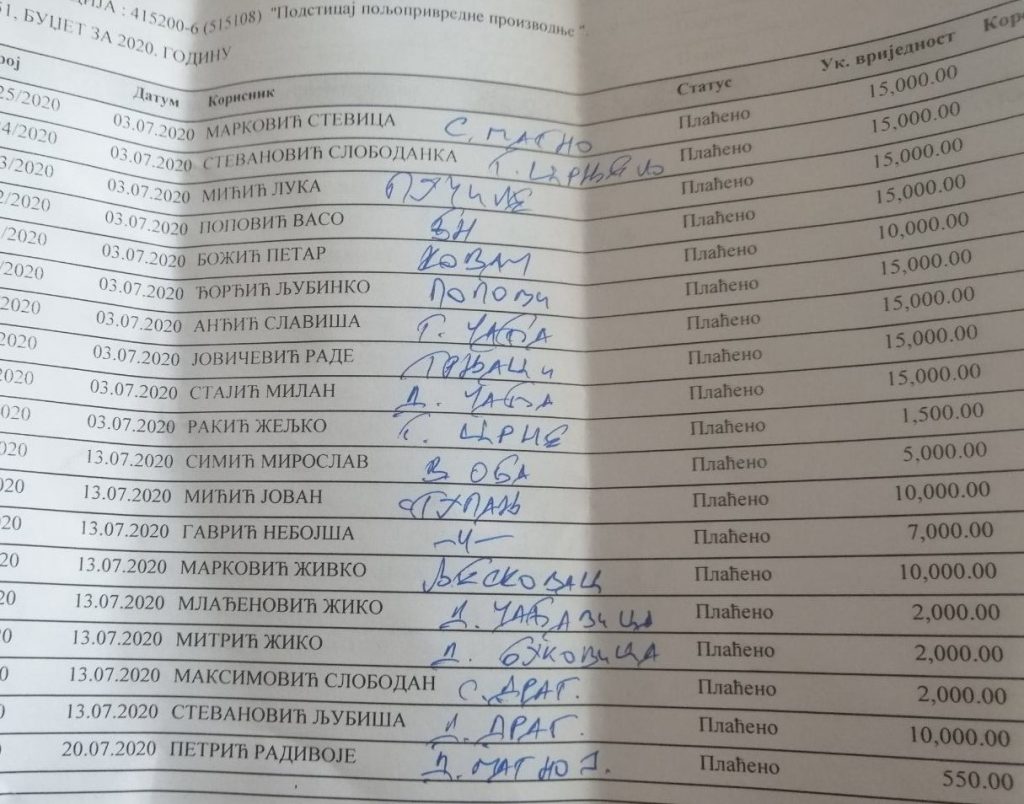 ЦИЈА : 415200-6 (515108) "Подстицај пољопривредне производње ".
51, БУЏЕТ ЗА 2020. ГОДИНУ
рој Датум Корисник Статус Ук. вриједност Кор
25/2020 03.07.2020 МАРКОВИЋ СТЕВИЦА С. МАГНО Плаћено 15,000.00
4/2020 03.07.2020 СТЕВАНОВИЋ СЛОБОДАНКА Г. ЦРЊЕЛО Плаћено 15,000.00
3/2020 03.07.2020 МИЋИЋ ЛУКА ПУЧИЛЕ Плаћено 15,000.00
2/2020 03.07.2020 ПОПОВИЋ ВАСО БН Плаћено 15,000.00
/2020 03.07.2020 БОЖИЋ ПЕТАР КОВАЧ Плаћено 10,000.00
/2020 03.07.2020 ЂОРЂИЋ ЉУБИНКО ПОПОВИ Плаћено 15,000.00
/2020 03.07.2020 АНЂИЋ СЛАВИША Г. ЧАЂА Плаћено 15,000.00
2020 03.07.2020 ЈОВИЧЕВИЋ РАДЕ Плаћено 15,000.00
2020 03.07.2020 СТАЈИЋ МИЛАН Д. ЧАЂА Плаћено 15,000.00
020 03.07.2020 РАКИЋ ЖЕЉКО Г. ЦРЊЕ Плаћено 1,500.00
020 13.07.2020 СИМИЋ МИРОСЛАВ В ОБА Плаћено 5,000.00
020 13.07.2020 МИЋИЋ ЈОВАН СТУПАЊ Плаћено 10,000.00
20 13.07.2020 ГАВРИЋ НЕБОЈША –〃– Плаћено 7,000.00
20 13.07.2020 МАРКОВИЋ ЖИВКО ЉЕСКОВАЦ Плаћено 10,000.00
20 13.07.2020 МЛАЂЕНОВИЋ ЖИКО Д. ЧАЂАВИЦА Плаћено 2,000.00
0 13.07.2020 МИТРИЋ ЖИКО Д. БУКОВИЦА Плаћено 2,000.00
0 13.07.2020 МАКСИМОВИЋ СЛОБОДАН С. ДРАГ. Плаћено 2,000.00
13.07.2020 СТЕВАНОВИЋ ЉУБИША Д. ДРАГ. Плаћено 10,000.00
20.07.2020 ПЕТРИЋ РАДИВОЈЕ Д. МАГНОЈ. Плаћено 550.00